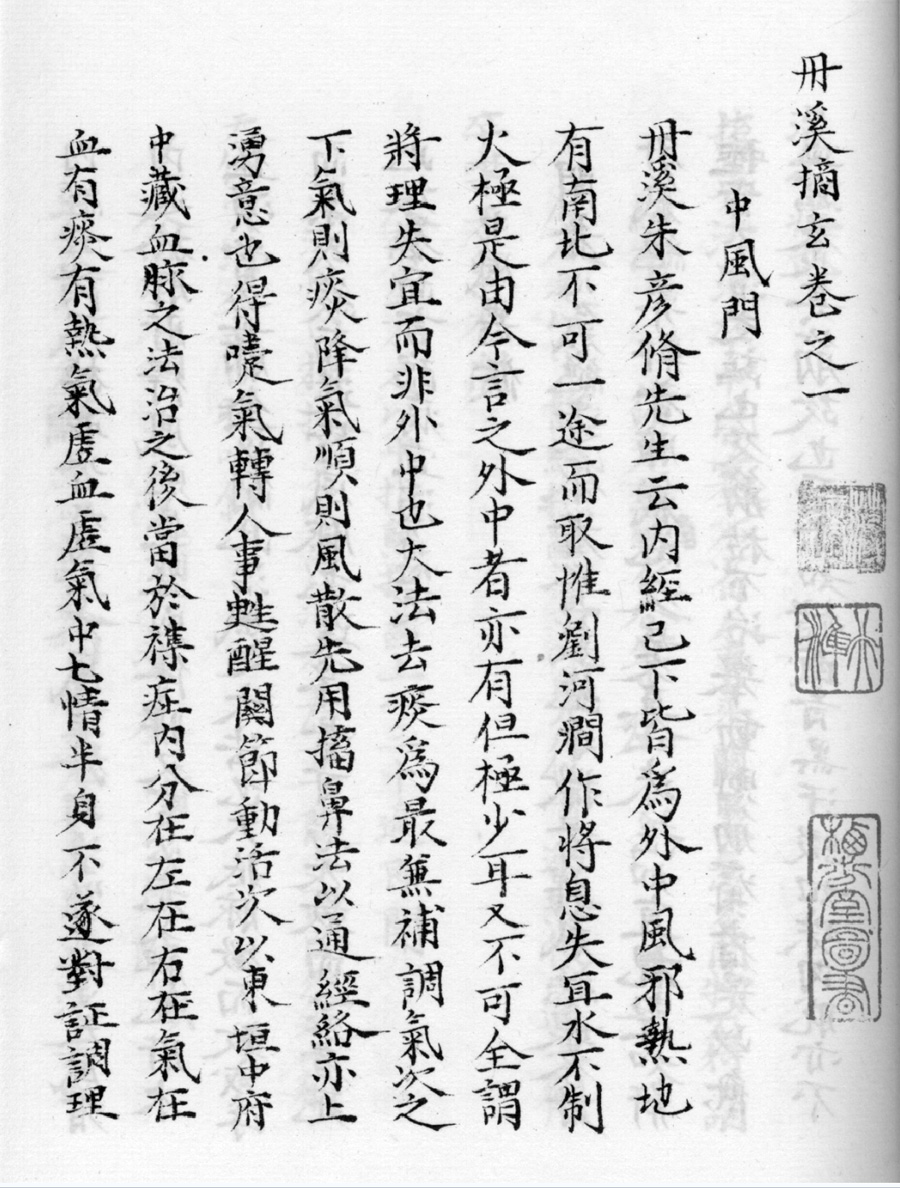 丹溪摘玄卷之一
中風門
丹溪朱彥脩先生云内經已下皆爲外中風邪熱地
有南北不可一途而取惟劉河澗作將息失宜水不制
火極是由今言之外中者亦有但極少耳又不可全謂
將理失宜而非外中也大法去痰爲最兼補調氣次之
下氣則痰降氣順則風散先用搐鼻法以通經絡亦上
湧意也得嚏氣轉人事甦醒關節動活次以東垣中府
中藏血脉之法治之後當於襍症内分在左在右在氣在
血有痰有熱氣虛血虛氣中七情半身不遂對証調理